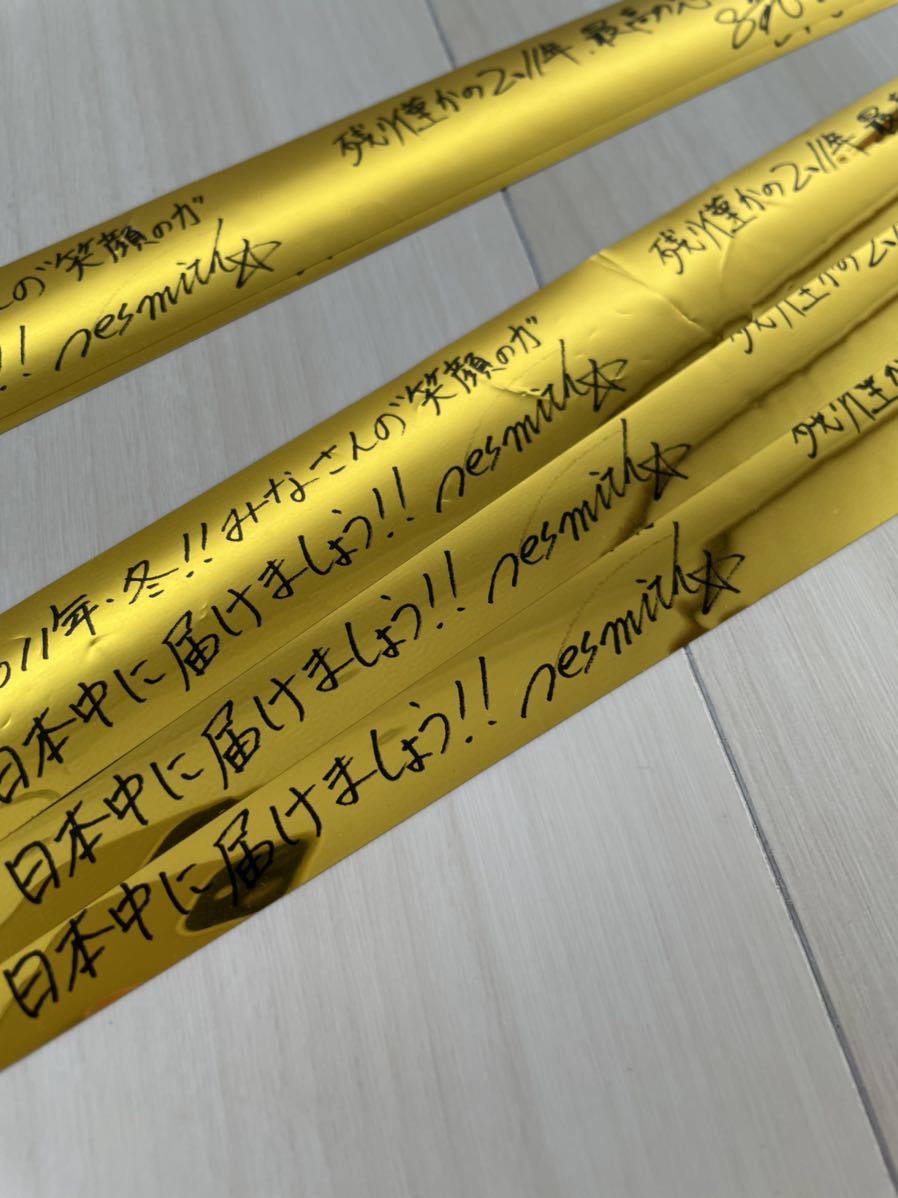 んの笑顔のガ
!! nesmith☆
残り僅かの2011年、最高
011年、冬!!みなさんの笑顔のガ
日本中に届けましょう!! nesmith☆
残り僅かの2011年、最
日本中に届けましょう!! nesmith☆
残り僅かの2
日本中に届けましょう!! nesmith☆
残り僅か